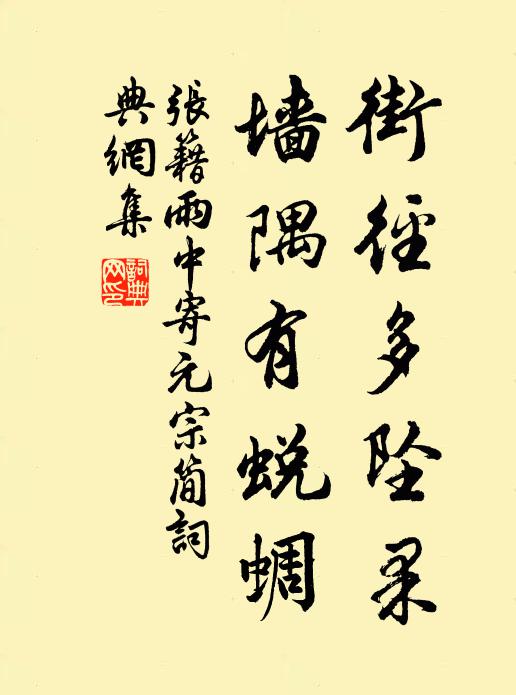 街徑多坠果
墙隅有蜕蜩
張籍雨中寄元宗簡詞
典網集
詞典
网印